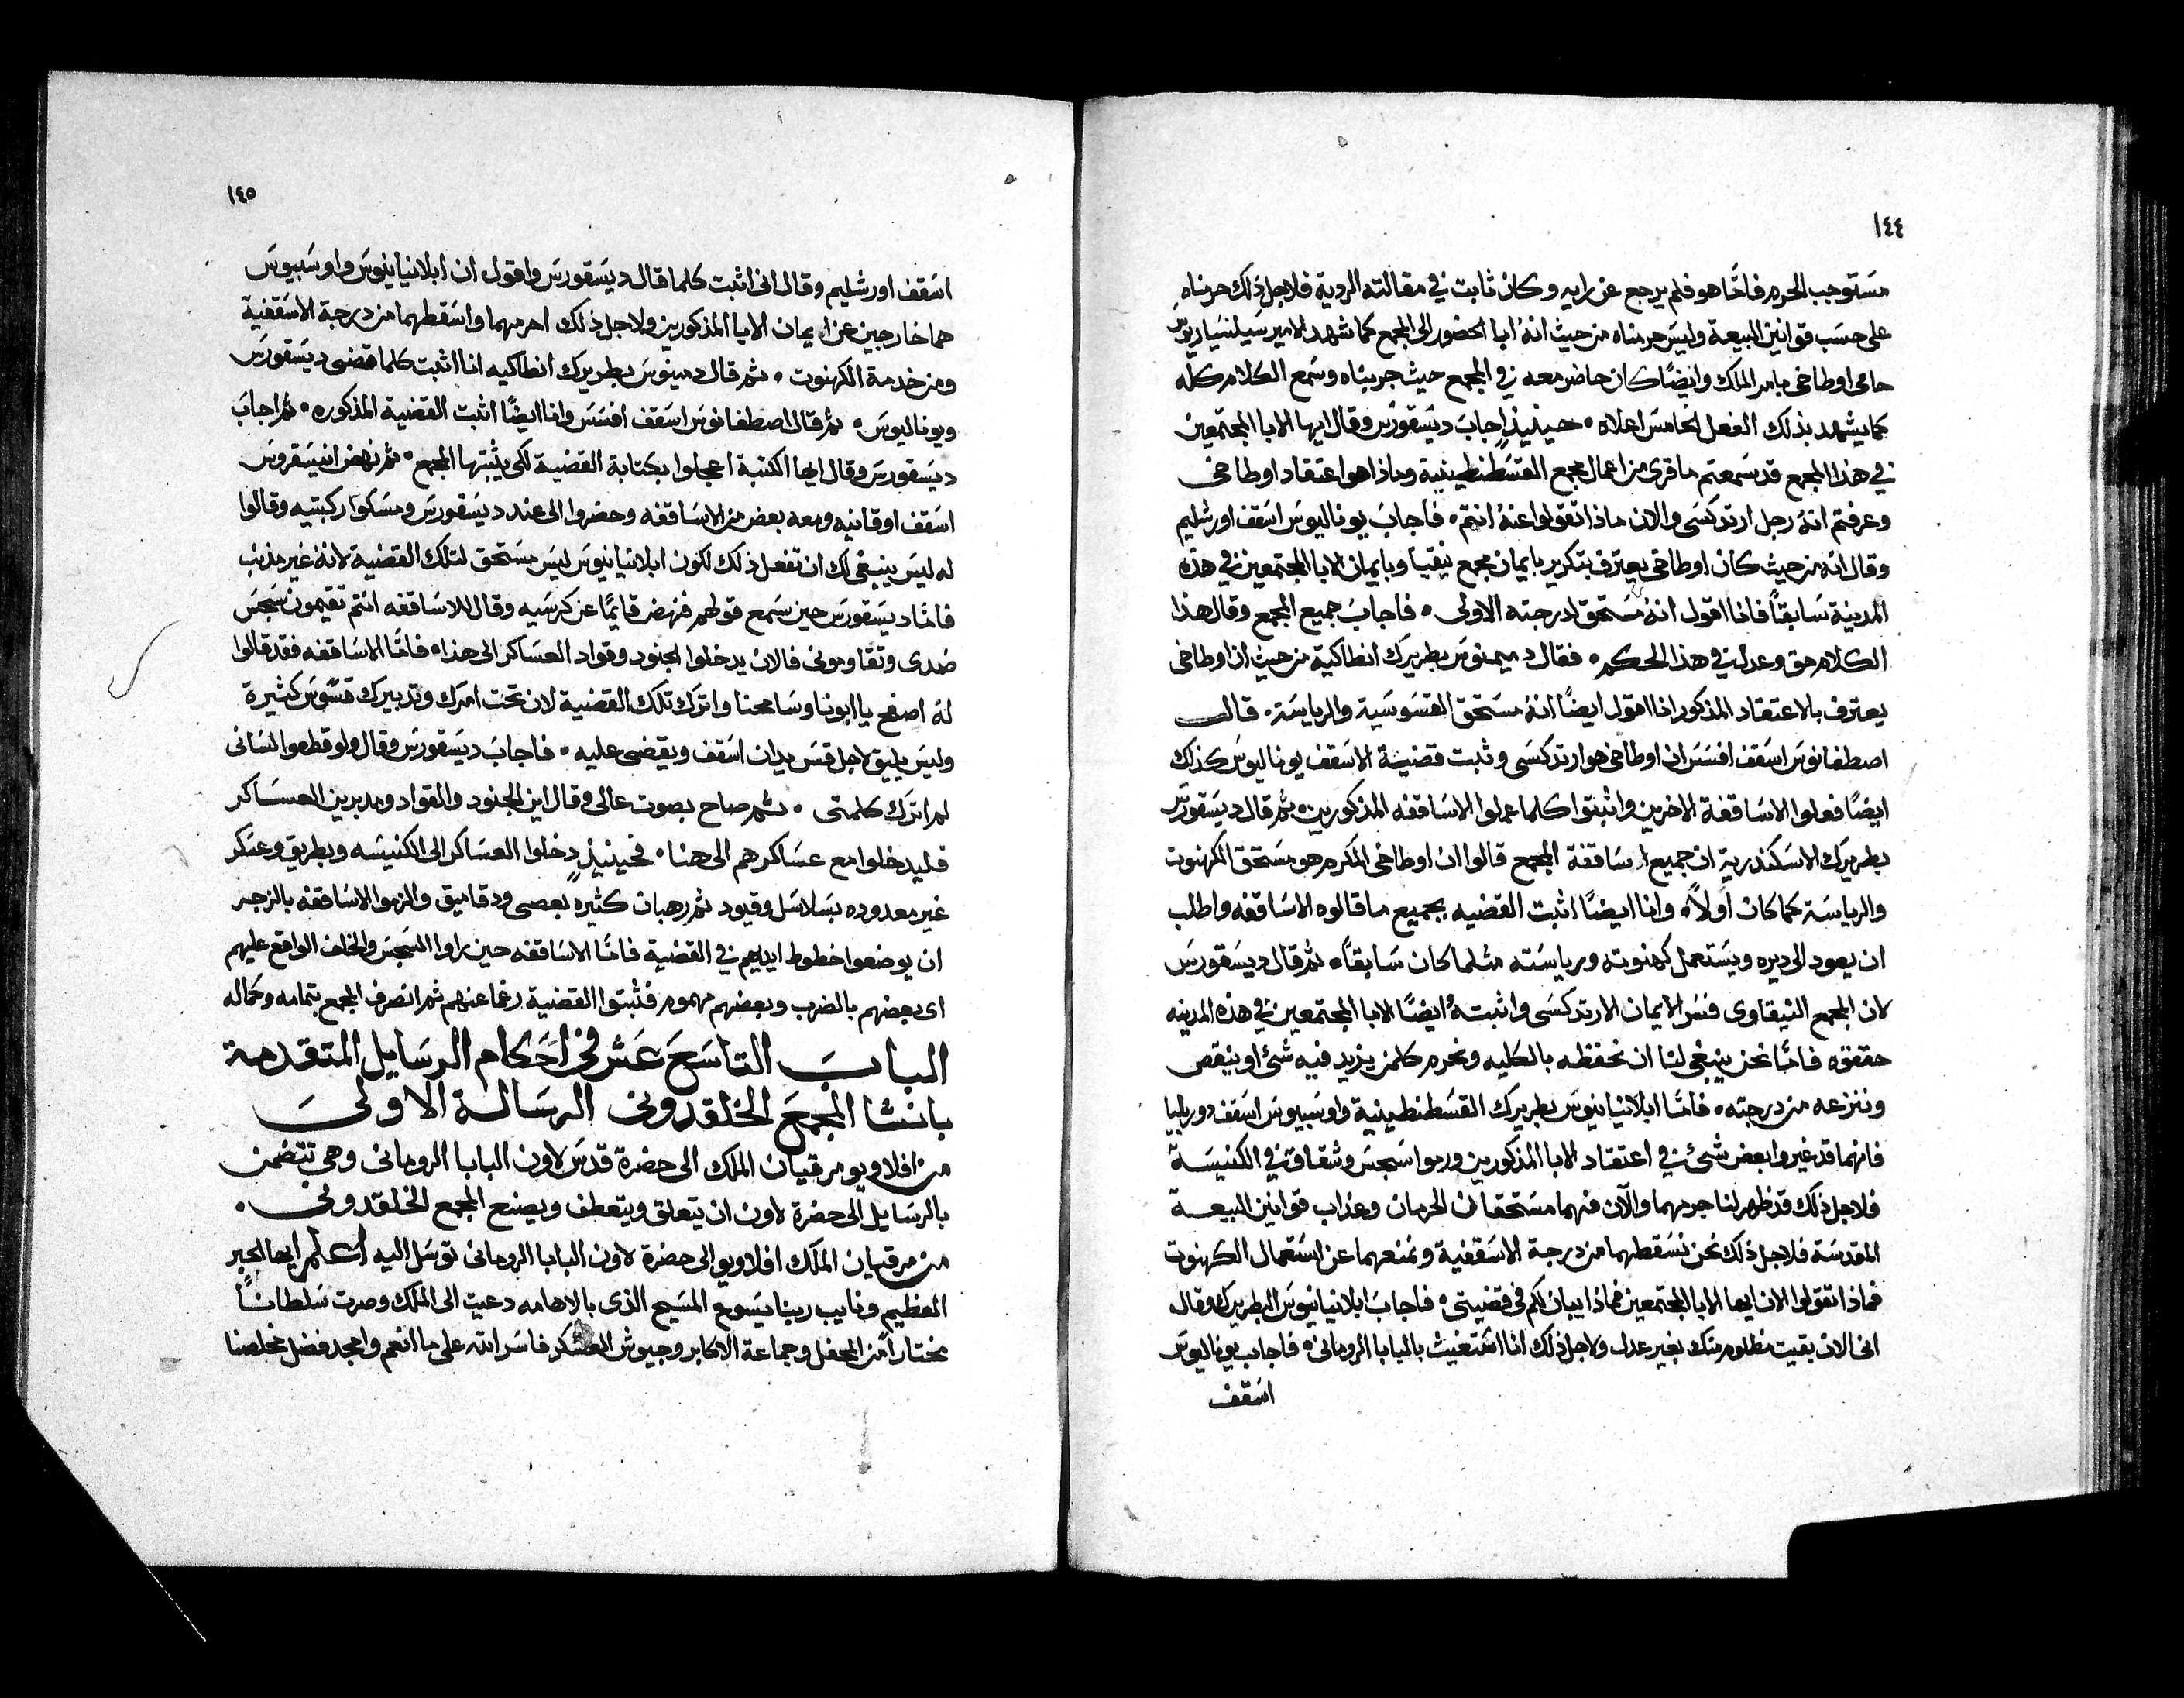 ١٤٤
مستوجب الحرم فامّا هو فلم يرجع عن رايه وكان ثابت في مقالته الردية فلاجل ذلك حرمناه
على حسب قوانين البيعة وليس حرمناه من حيث انهُ ابا الحضور الى المجمع كما شهد الامير سيلنسياريوس
حامى اوطاخى بامر الملك وايضًا كان حاضر معه في المجمع حيث جربناه وسمع الكلام كله
كما يشهد بذلك الفعل الخامس اعلاه • حينيذٍ اجاب ديسقورس وقال ايها الابا المجتمعين
في هذا المجمع قد سمعتم ما قرى من اعمال مجمع القسطنطينية وماذا هو اعتقاد اوطاخى
وعرفتم انهُ رجل ارتدكسى والان ماذا تقولوا عنهُ انتم • فاجاب يوناليوس اسقف اورشليم
وقال انه من حيث كان اوطاخى يعترف بتكرير بايمان مجمع نيقيا وبايمان الابا المجتمعين في هذه
المدينة سابقًا فانا اقول انهُ مستحق لدرجته الاولى • فاجاب جميع المجمع وقال هذا
الكلام حق وعدل في هذا الحكم • فقال دميمنوس بطريرك انطاكية من حيث ان اوطاخى
يعترف بالاعتقاد المذكور انا اقول ايضًا انهُ مستحق القسوسية والرياسة • قال
اصطفانوس اسقف افسس ان اوطاخى هو ارتدكسى وثبت قضية الاسقف يوناليوس كذلك
ايضًا فعلوا الاساقفة الاخرين واثبتوا كلما عملوا الاساقفه المذكورين • ثم قال ديسقورس
بطريرك الاسكندرية ان جميع اساقفة المجمع قالوا ان اوطاخى المكرم هو مستحق الكهنوت
والرياسة كما كان اولاً • وانا ايضًا اثبت القضيه بجميع ما قالوه الاساقفه واطلب
ان يعود الى ديره ويستعمل كهنوته ورياسته مثلما كان سابقًا • ثم قال ديسقورس
لان المجمع النيقاوى فسر الايمان الارتدكسى واثبتهُ ايضًا الابا المجتمعين في هذه المدينه
حققوه فامّا نحن ينبغى لنا ان نحفظه بالكليه ونحرم كلمن يزيد فيه شئ او ينقص
وننزعه من درجته • فامّا ابلانيانيوس بطريرك القسطنطينية واوسبيوس اسقف دوريليا
فانهما قد غيروا بعض شئ في اعتقاد الابا المذكورين ورموا سجس وشقاق في الكنيسة
فلاجل ذلك قد ظهر لنا جرمهما والآن فهما مستحقان الحرمان وعذاب قوانين البيعة
المقدسة فلاجل ذلك نحن نسقطهما من درجة الاسقفية ونمنعهما عن استعمال الكهنوت
فماذا تقولوا الان ايها الابا المجتمعين فماذا يبان لكم في قضيتى • فاجاب ابلانيانيوس البطريرك وقال
انى الان بقيت مظلوم منك بغير عدل ولاجل ذلك انا استغيث بالبابا الرومانى • فاجاب يوناليوس
اسقف
١٤٥
اسقف اورشليم وقال انى اثبت كلما قال ديسقورس واقول ان ابلانيانيوس واوسبيوس
هما خارجين عن ايمان الابا المذكورين ولاجل ذلك احرمهما واسقطهما من درجة الاسقفية
ومن خدمة الكهنوت • ثم قال دمينوس بطريرك انطاكيه انا اثبت كلما قضى ديسقورس
ويوناليوس • ثم قال اصطفانوس اسقف افسس وانا ايضًا اثبت القضية المذكوره • ثم اجاب
ديسقورس وقال ايها الكتبة اعجلوا بكتابة القضية لكى يثبتها المجمع • ثم نهض انيسفروس
اسقف اوقانيه ومعه بعض من الاساقفه وحضروا الى عند ديسقورس ومسكوا ركبتيه وقالوا
له ليس ينبغى لك ان تفعل ذلك لكون ابلانيانيوس ليس مستحق لتلك القضية لانهُ غير مذنب
فامّا ديسقورس حين سمع قولهم فنهض قايمًا عن كرسيه وقال للاساقفه انتم تقيمون سجس
ضدى وتقاومونى فالان يدخلوا الجنود وقواد العساكر الى هذا • فامّا الاساقفه فقد قالوا
لهُ اصفح يا ابونا وسامحنا واترك تلك القضية لان تحت امرك وتدبيرك قسوس كثيرة
وليس يليق لاجل قس يدان اسقف ويقضى عليه • فاجاب ديسقورس وقال ولو قطعوا لسانى
لم اترك كلمتى • ثم صاح بصوت عالى وقال اين الجنود والقواد ومدبرين العساكر
فليدخلوا مع عساكرهم الى هنا • فحينيذٍ دخلوا العساكر الى الكنيسه وبطريق وعسكر
غير معدوده بسلاسل وقيود ثم رهبان كثيره بعصى ودقاميق والزموا الاساقفه بالزجر
ان يوضعوا خطوط ايديهم في القضية فامّا الاساقفه حين راوا السجس والخلف الواقع عليهم
اى بعضهم بالضرب وبعضهم مهموم فثبتوا القضية رغمًا عنهم ثم انصرف المجمع بتمامه وكماله
الباب التاسع عشر في احكام الرسايل المتقدمة
بانشا المجمع الخلقدونى الرسالة الاولى
من افلاويو مرقيان الملك الى حضرة قدس لاون البابا الرومانى وهى تتضمن
بالرسايل الى حضرة لاون ان يتعلق ويتعطف ويصنع المجمع الخلقدونى •
من مرقيان الملك افلاويو الى حضرة لاون البابا الرومانى توسل اليه اعلم ايها الحبر
العظيم ونايب ربنا يسوع المسيح الذى بالاهامه دعيت الى الملك وصرت سلطانًا
مختارًا من المحفل وجماعة الاكابر وجيوش العسكر فاسر الله على ما انعم وامجد فضل مخلصنا